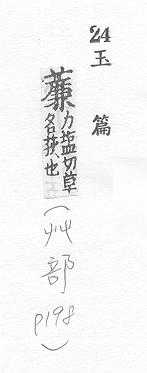 24
玉篇
薕力塩切草
名荻也
(艸部 p198)